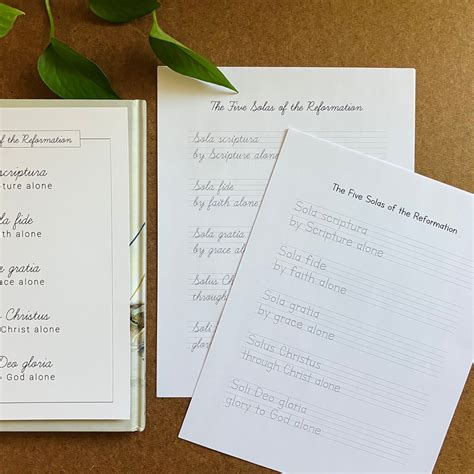 of the Reformation
scriptura
pture alone
la fide
aith alone
gratia
ce alone
Christus
Christ alone
Deo gloria
God alone
The Five Solas of the Reformation
Sola scriptura
by Scripture alone
Sola fide
by faith alone
Sola gratia
by grace alone
Solus Ch
through
Soli D
glory
The Five Solas of the Reformation
Sola scriptura
by Scripture alone
Sola fide
by faith alone
Sola gratia
by grace alone
Solus Christus
through Christ alone
Soli Deo gloria
glory to God alone